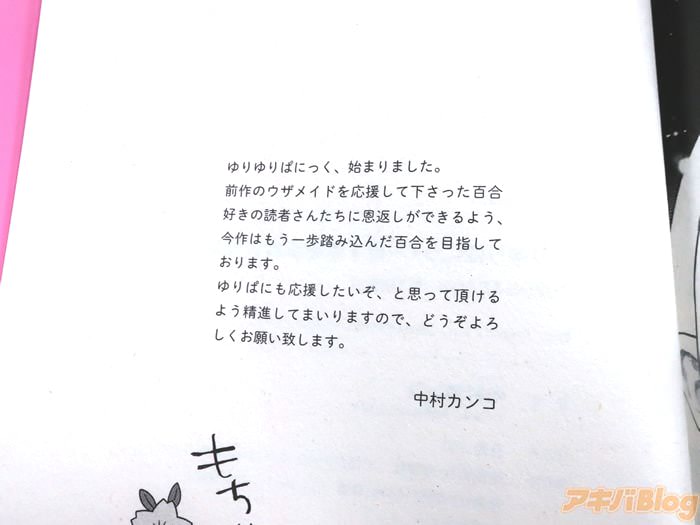 ゆりゆりぱにっく、始まりました。
前作のウザメイドを応援して下さった百合
好きの読者さんたちに恩返しができるよう、
今作はもう一歩踏み込んだ百合を目指して
おります。
ゆりぱにも応援したいぞ、と思って頂ける
よう精進してまいりますので、どうぞよろ
しくお願い致します。
中村カンコ
もち
アキバBlog